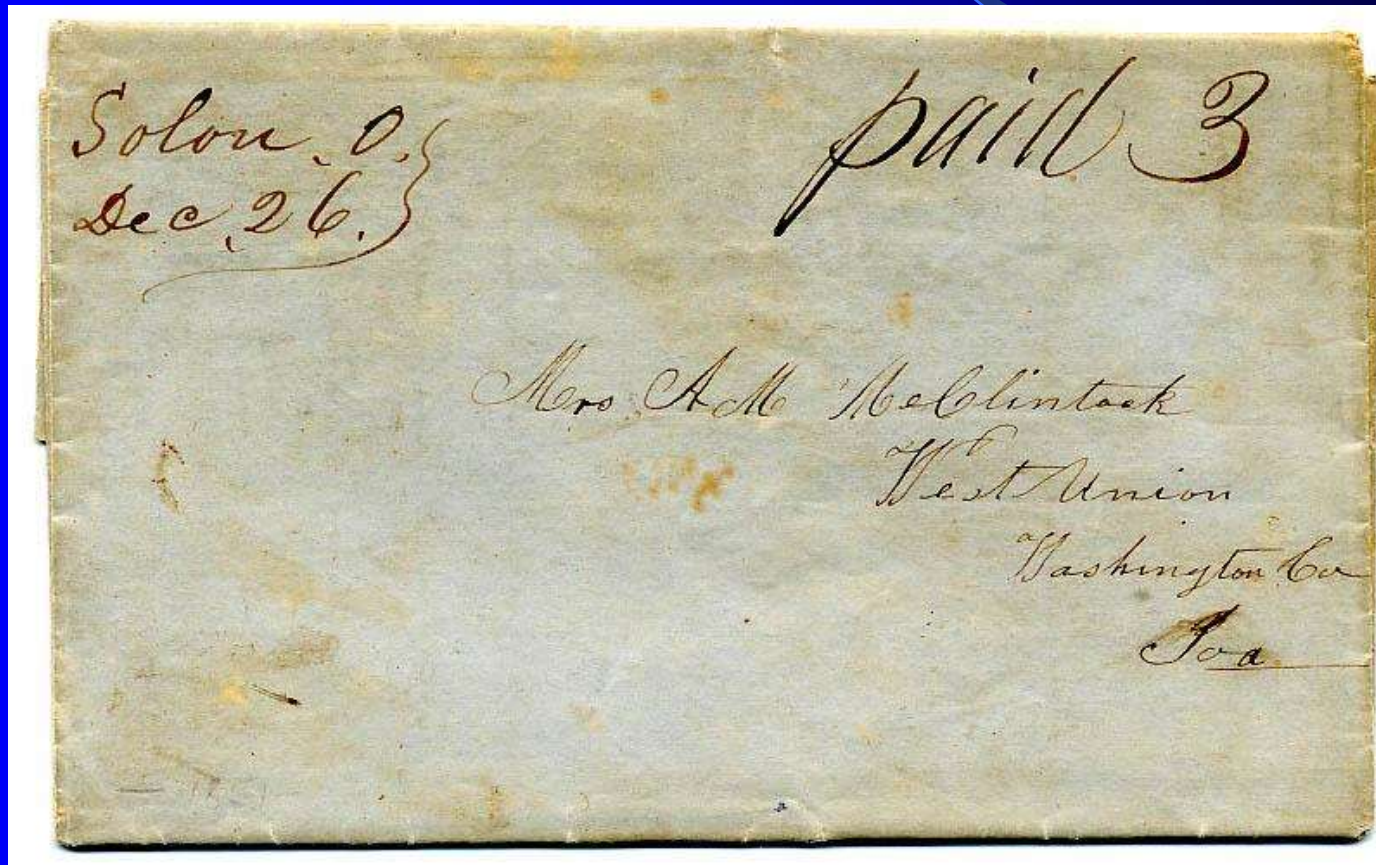 Solon. O.
Dec. 26.
paid 3
Mrs A M McClintock
West Union
Washington Co
Ioa